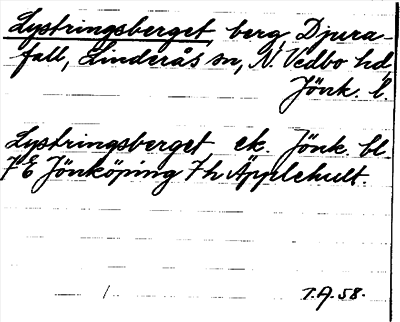 Lystringsberget, berg, Djura-
fall, Linderås sn, N. Vedbo hd
Jönk. l.
Lystringsberget ek. Jönk. bl.
7E Jönköping 7h Äpplehult.
T.A. 58.